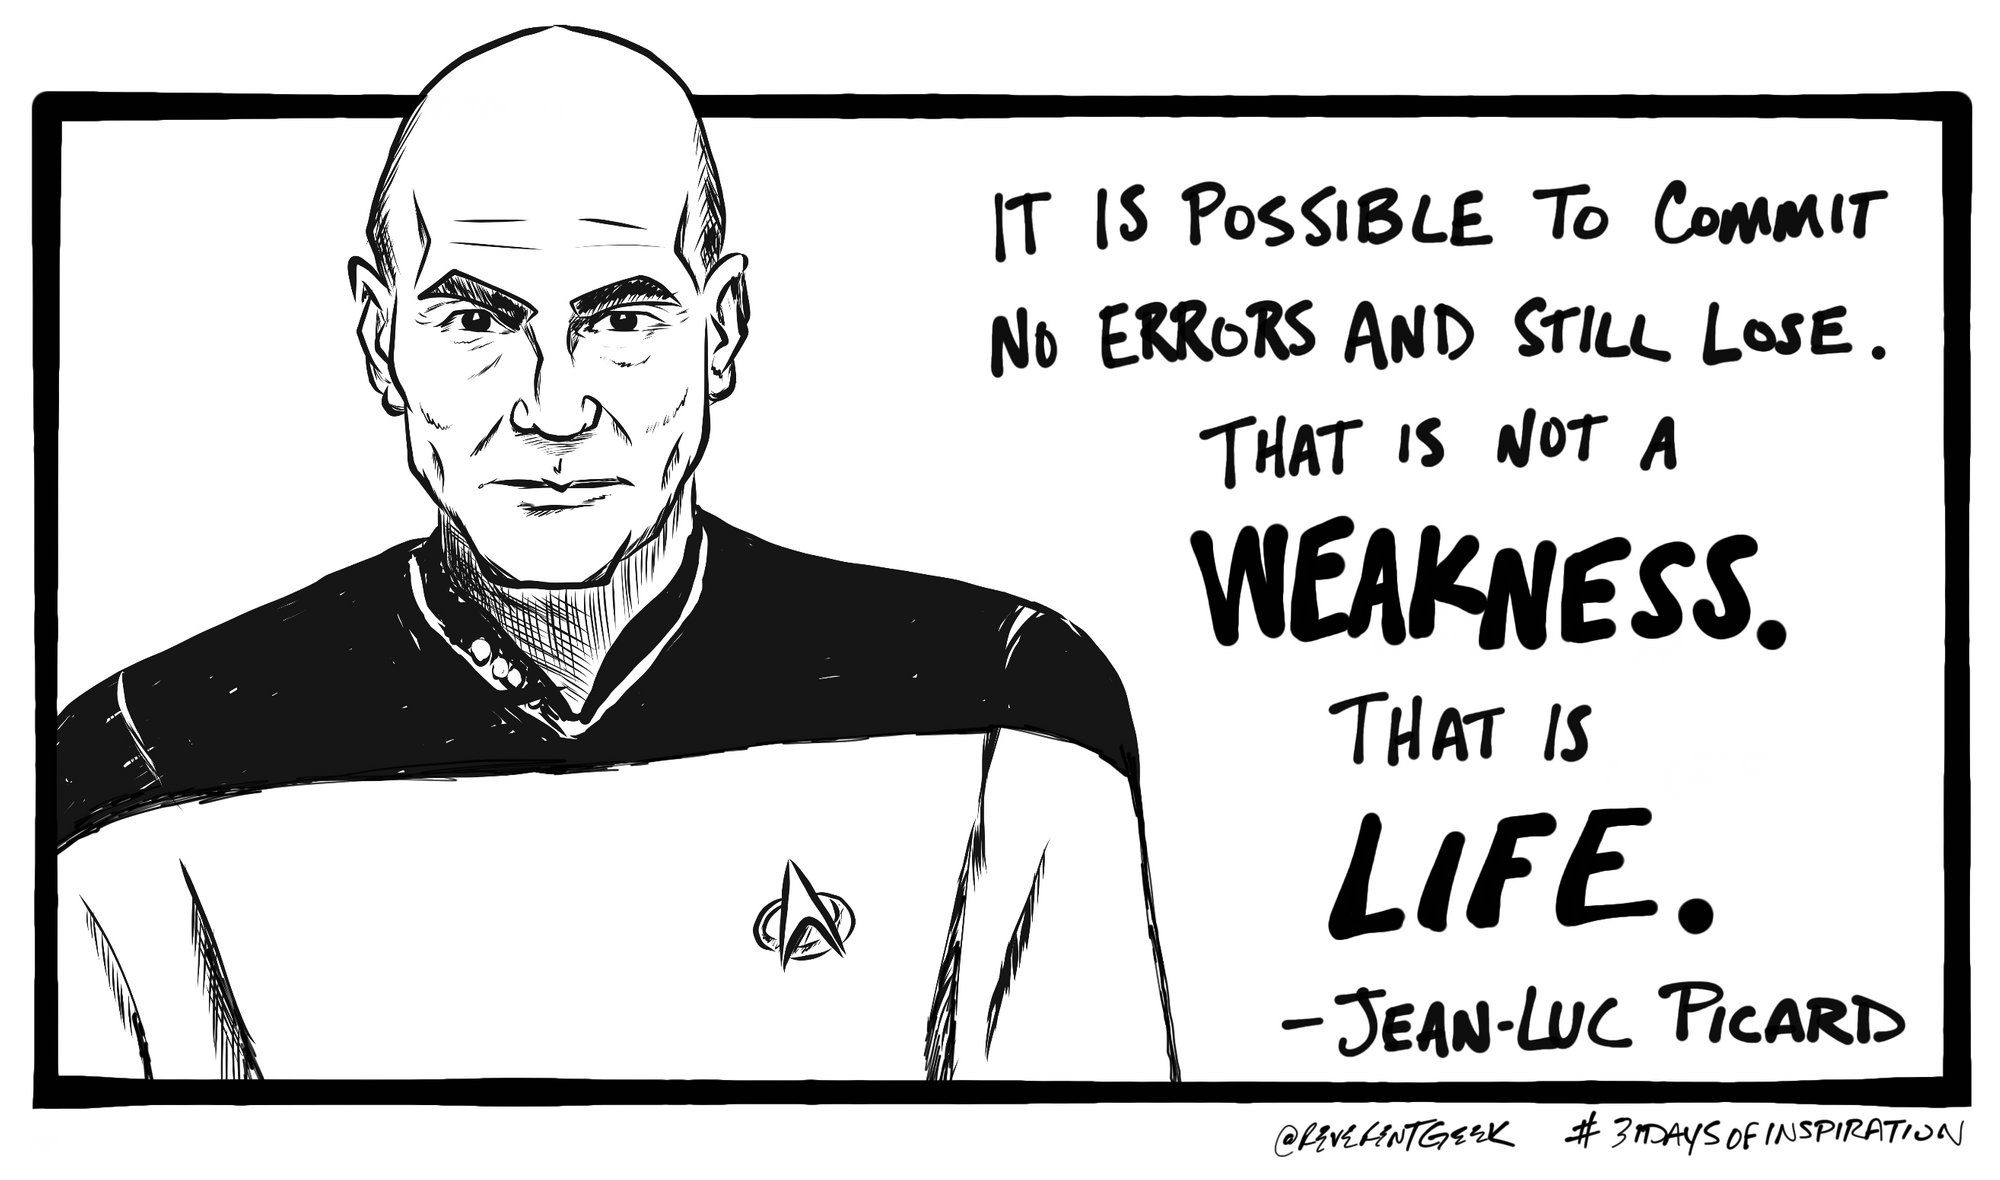 IT IS POSSIBLE TO COMMIT
NO ERRORS AND STILL LOSE.
THAT IS NOT A
WEAKNESS.
THAT IS
LIFE.
-JEAN-LUC PICARD
@REVERENTGEEK #31DAYSOFINSPIRATION